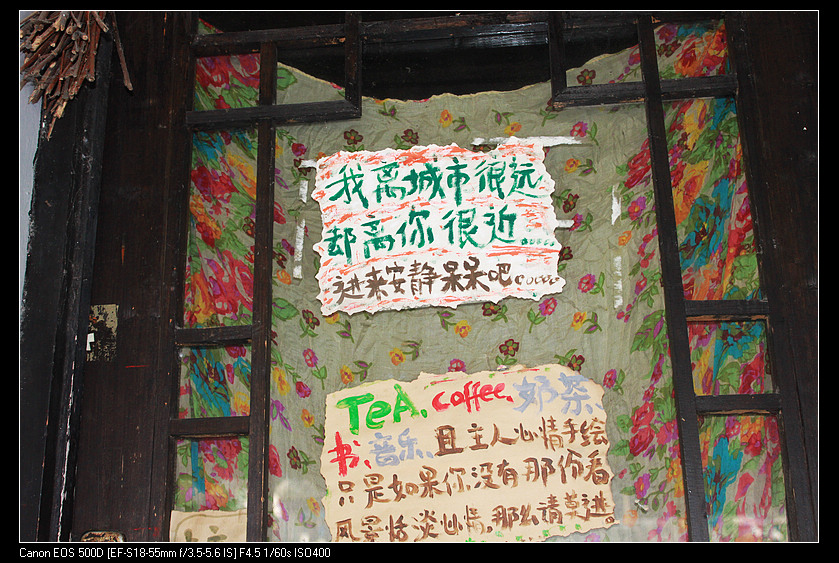 我离城市很远
却离你很近......
进来安静呆呆吧......
TeA. coffee. 奶茶、
书、音乐、且主人心情手绘
只是如果你没有那份看
风景恬淡心情.那么请莫进。
Canon EOS 500D [EF-S18-55mm f/3.5-5.6 IS] F4.5 1/60s ISO400